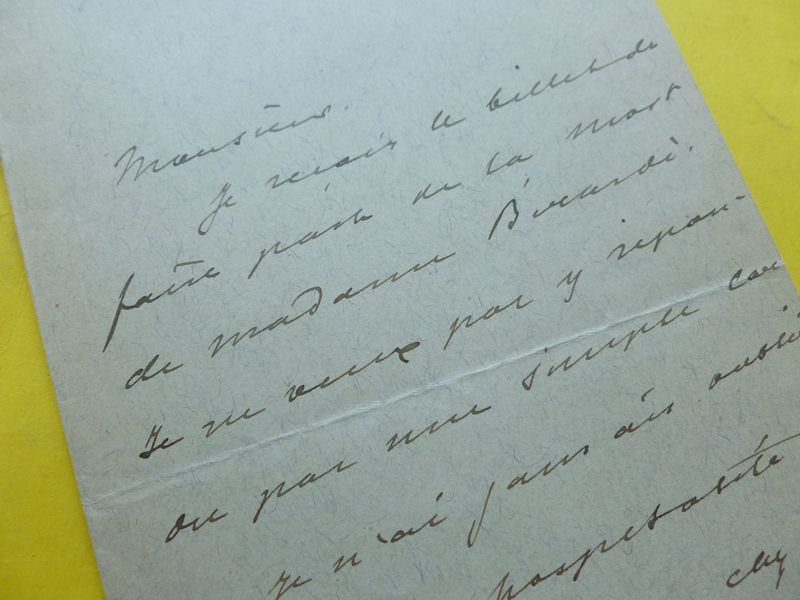 Monsieur.
Je reçois le billet de
faire part de la mort
de madame Bérardi.
Je ne veux pas y répon-
ou par une simple car
Je n'ai jamais oublié
hospitalité
chez